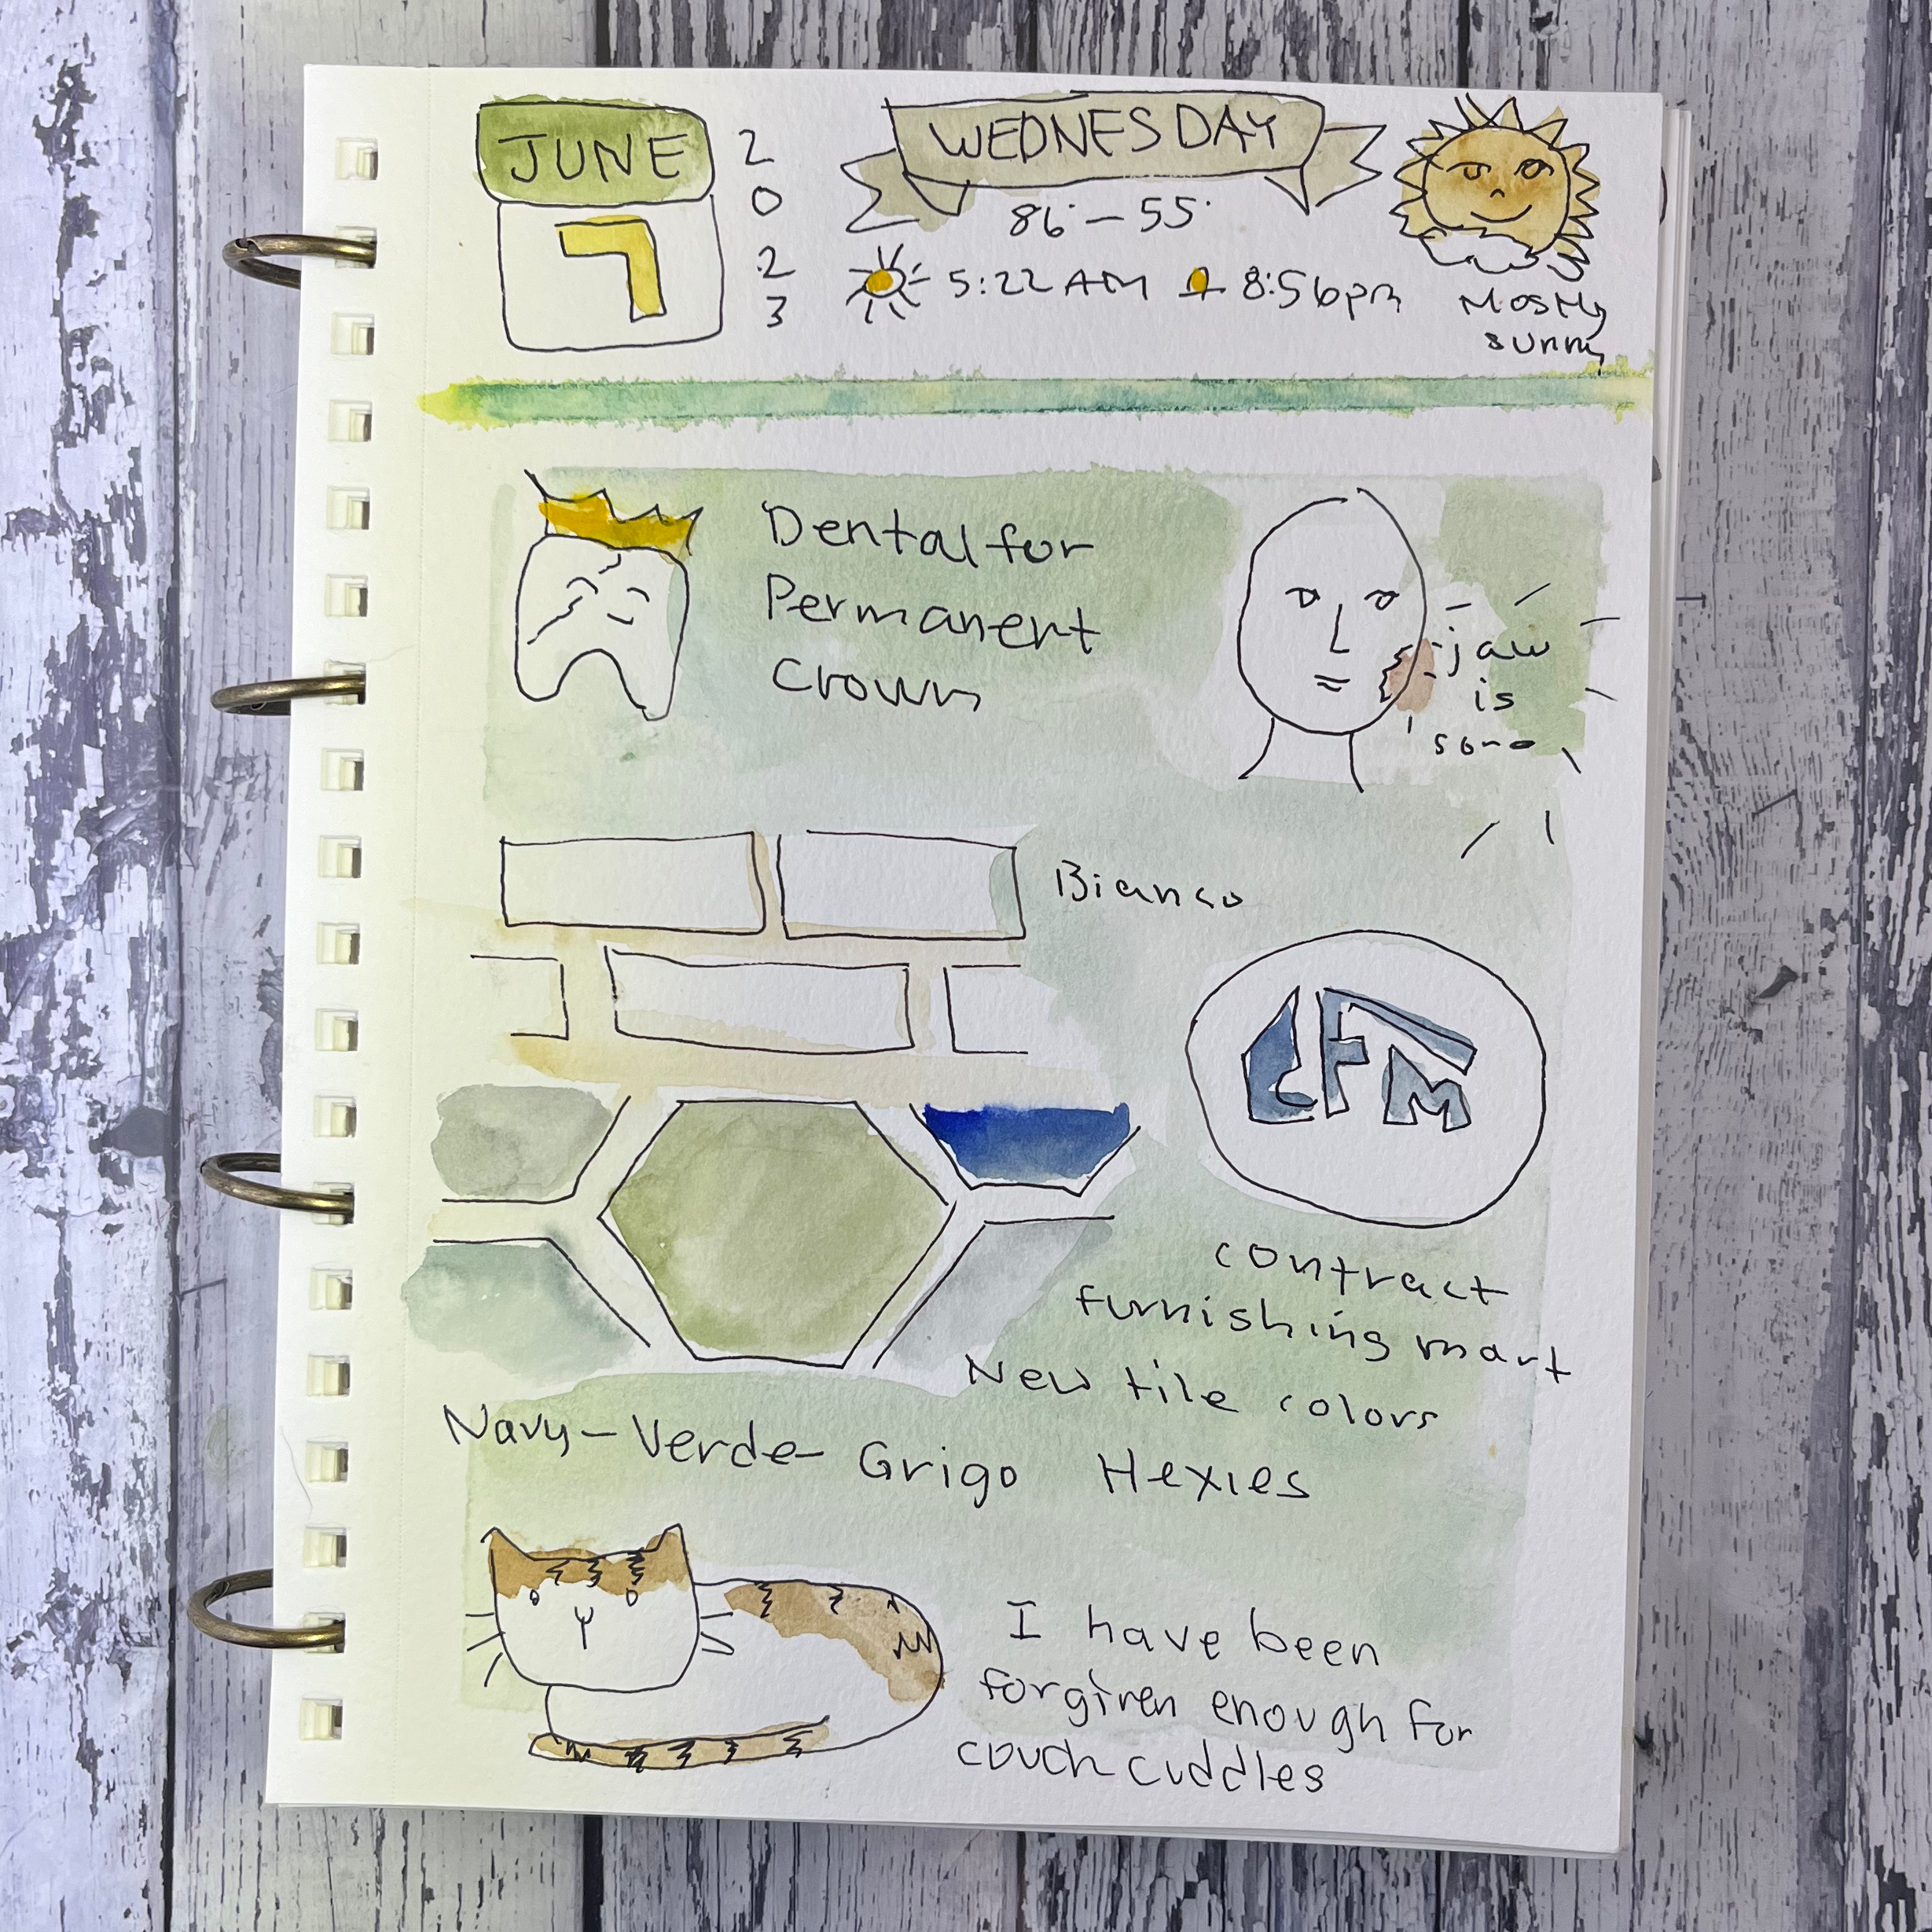 JUNE
7
2
0
2
3
WEDNESDAY
86° - 55°
5:22 AM 8:56pm
Mostly
sunny
Dental for
Permanent
Crown
jaw
is
sore
Bianco
CFM
contract
furnishing mart
New tile colors
Navy - Verde - Grigo Hexies
I have been
forgiven enough for
couch cuddles